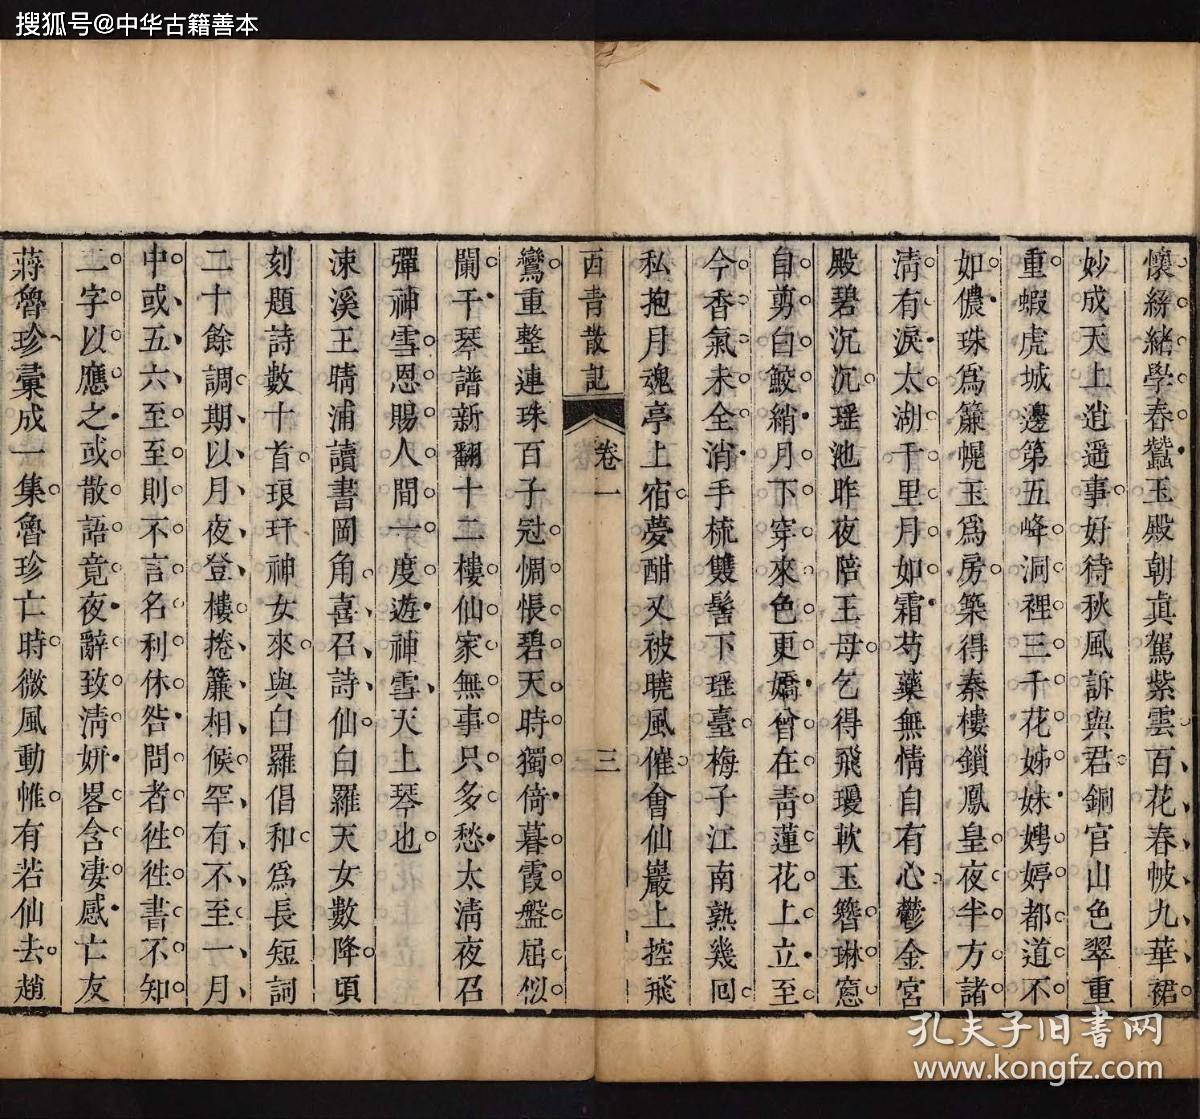 搜狐号@中华古籍善本
懷絲緒學春蠶玉殿朝眞駕紫雲百花春帔九華裙
妙成天上逍遥事好待秋風訴與君銅官山色翠重
重蝦虎城邊第五峰洞裡三千花姊妹娉婷都道不
如儂珠爲簾幌玉爲房築得秦樓鎖鳳皇夜半方諸
淸有淚太湖千里月如霜芍藥無情自有心鬱金宮
殿碧沉沉瑶池昨夜陪王母乞得飛瓊軟玉簪琳窻
自剪白鮫綃月下穿來色更嬌曾在靑蓮花上立至
今香氣未全消手梳雙髻下瑶臺梅子江南熟幾回
私抱月魂亭上宿夢酣又被曉風催會仙巖上控飛
西青散記
卷一
三
鸞重整連珠百子冠惆悵碧天時獨倚暮霞盤屈似
闌干琴譜新翻十二樓仙家無事只多愁太淸夜召
彈神雪恩賜人間一度遊神雪天上琴也
涑溪王晴浦讀書岡角喜召詩仙白羅天女數降頃
刻題詩數十首琅玕神女來與白羅倡和爲長短詞
二十餘調期以月夜登樓捲簾相候罕有不至一月
中或五六至至則不言名利休咎問者徃徃書不知
二字以應之或散語竟夜辭致淸妍畧含凄感亡友
蔣魯珍彙成一集魯珍亡時微風動帷有若仙去趙
孔夫子旧书网
www.kongfz.com